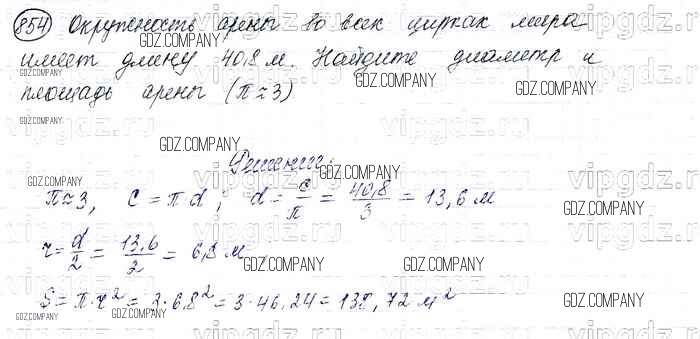 854 Окружность арены во всех цирках мира
имеет длину 40,8 м. Найдите диаметр и
площадь арены (π≈3)
Решение:
π≈3, C = πd; d = C/π = 40,8/3 = 13,6 м
r = d/2 = 13,6/2 = 6,8 м
S = π·r² = 3·6,8² = 3·46,24 = 138,72 м²
GDZ.COMPANY
GDZ.COMPANY
GDZ.COMPANY
GDZ.COMPANY
GDZ.COMPANY
GDZ.COMPANY
GDZ.COMPANY
GDZ.COMPANY
GDZ.COMPANY
GDZ.COMPANY
GDZ.COMPANY
GDZ.COMPANY
GDZ.COMPANY
vipgdz.ru
vipgdz.ru
vipgdz.ru